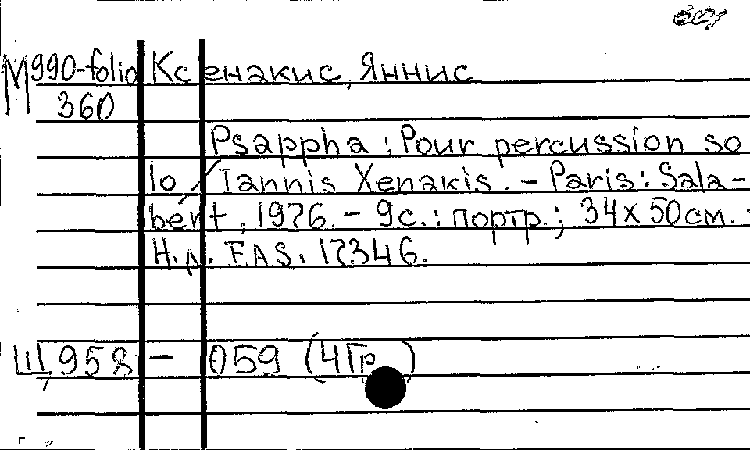 М990-folio Ксенакис, Яннис
360
Psappha : Pour percussion so
lo / Iannis Xenakis. - Paris: Sala-
bert, 1976. - 9с.: портр.; 34x50см. -
Н.д. E.A.S. 17346.
Щ958 - 059 (4Гр.)